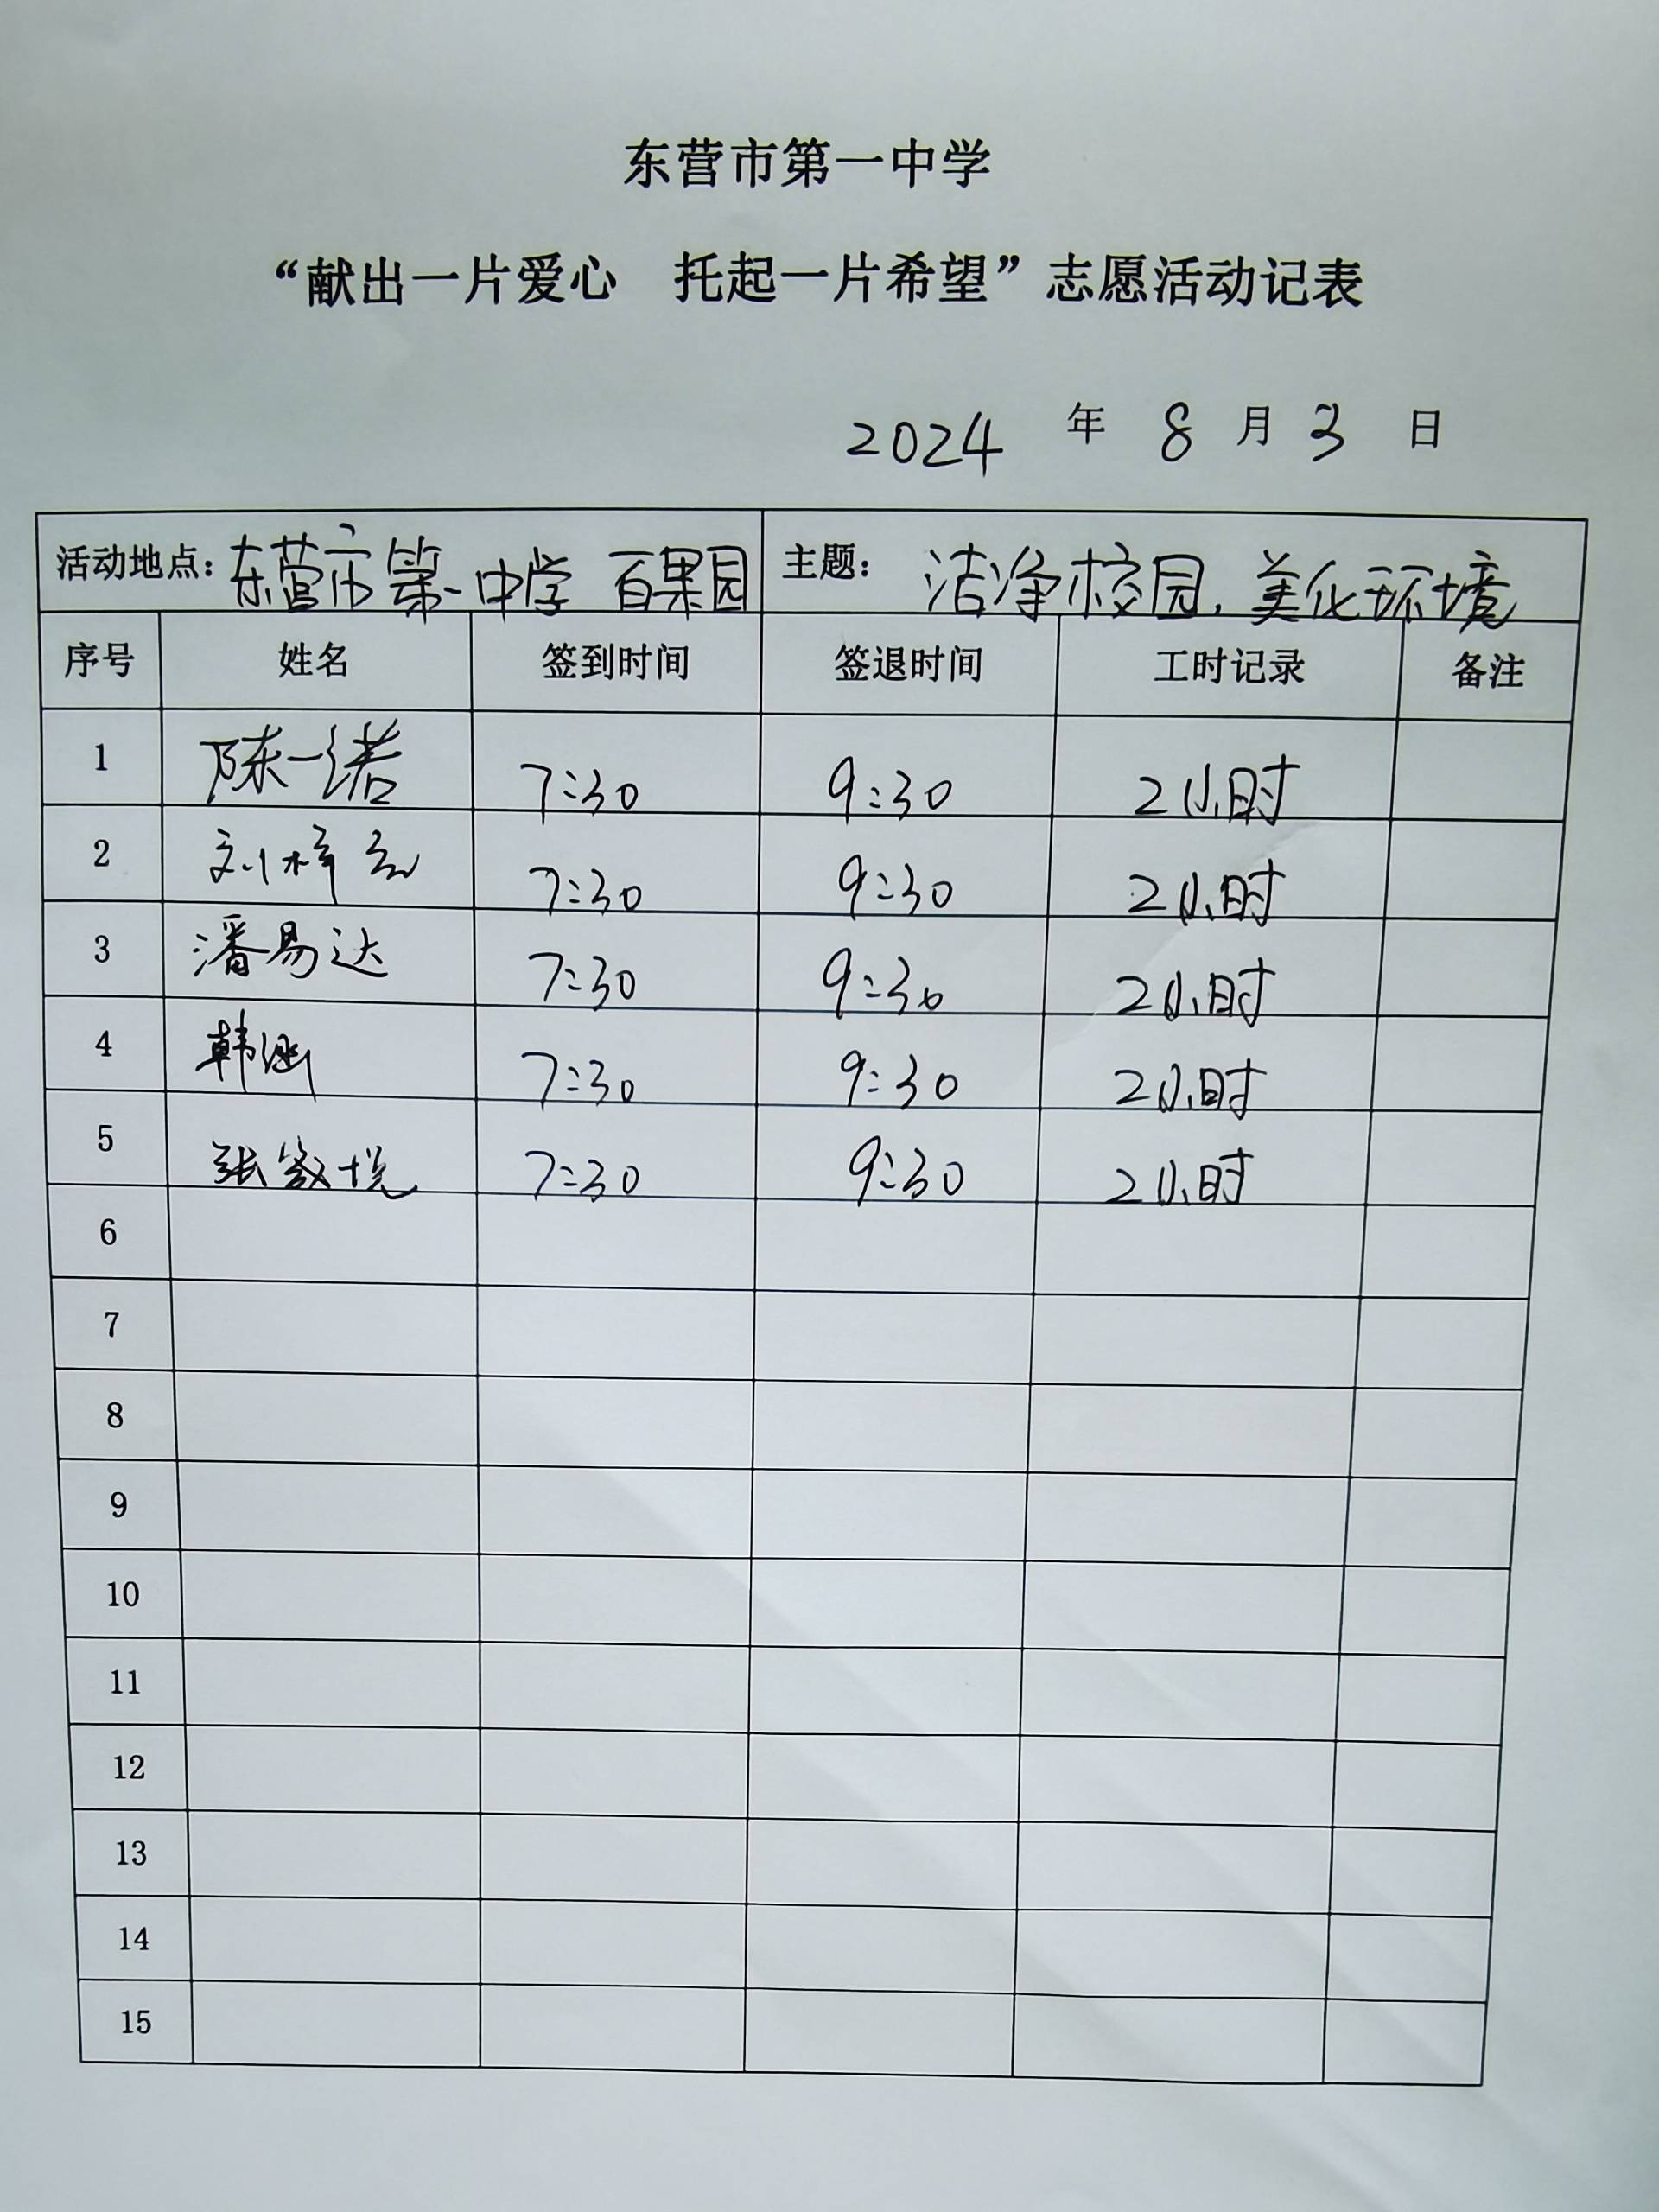 东营市第一中学
“献出一片爱心 托起一片希望”志愿活动记表
2024 年 8 月 3 日
活动地点：东营市第一中学 百果园 主题： 洁净校园，美化环境
序号 姓名 签到时间 签退时间 工时记录 备注
1 陈一诺 7:30 9:30 2小时
2 刘梓 7:30 9:30 2小时
3 潘易达 7:30 9:30 2小时
4 韩 7:30 9:30 2小时
5 张 悦 7:30 9:30 2小时
6
7
8
9
10
11
12
13
14
15